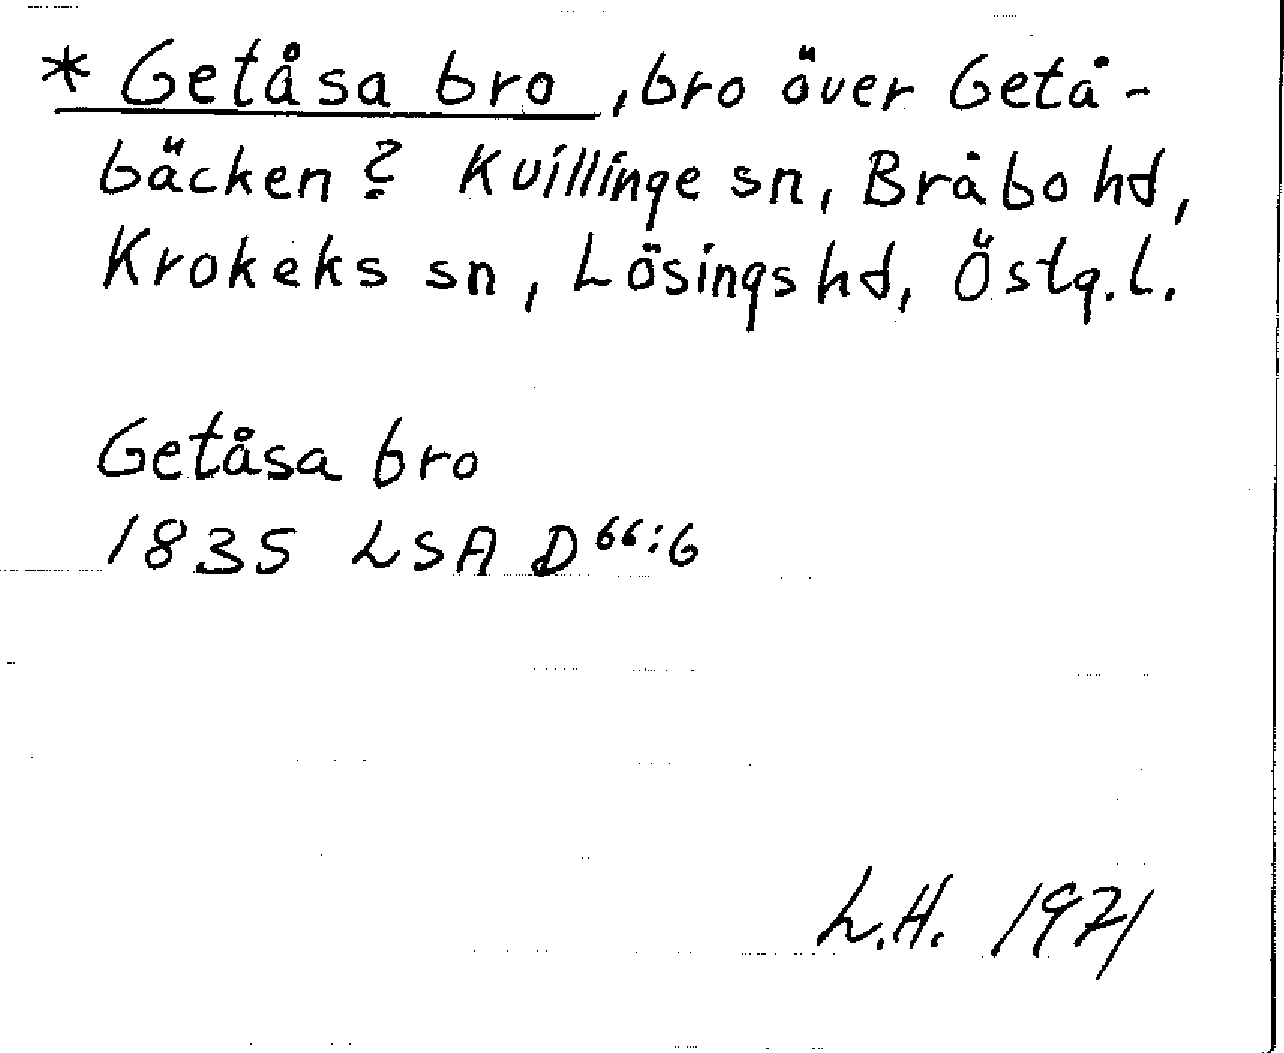 * Getåsa bro, bro över Getå-
bäcken? Kvillinge sn, Bråbo hd,
Krokeks sn, Lösings hd, Östg.l.
Getåsa bro
1835 LSA D66:6
L.H. 1971